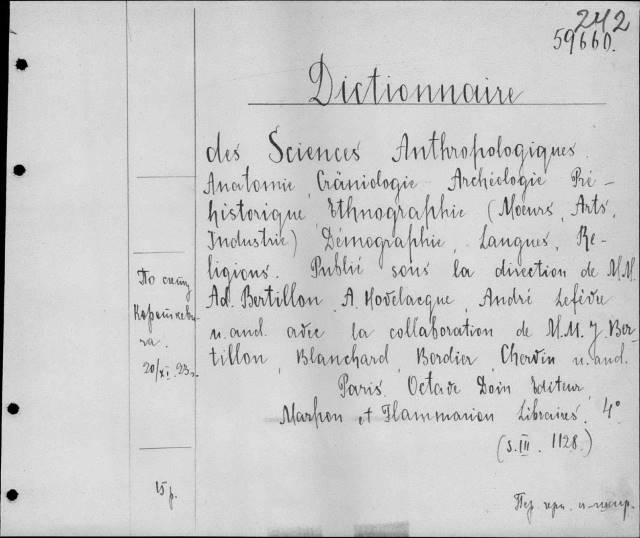 242
59660.
Dictionnaire
des Sciences Anthropologiques.
Anatomie, Crâniologie, Archéologie Pré-
historique, Ethnographie (Moeurs, Arts,
Industrie) Démographie, Langues, Re-
ligions. Publié sous la direction de M.M.
Ad. Bertillon, A. Hovelacque, André Lefèvre
u. and. avec la collaboration de M.M. J. Ber-
tillon, Blanchard, Bordier, Chervin u. and.
Paris. Octave Doin Editeur,
Marpon et Flammarion Libraires. 4°
(S. III. 1128.)
По счету
20/XI. 23 г.
15 р.
Пер.